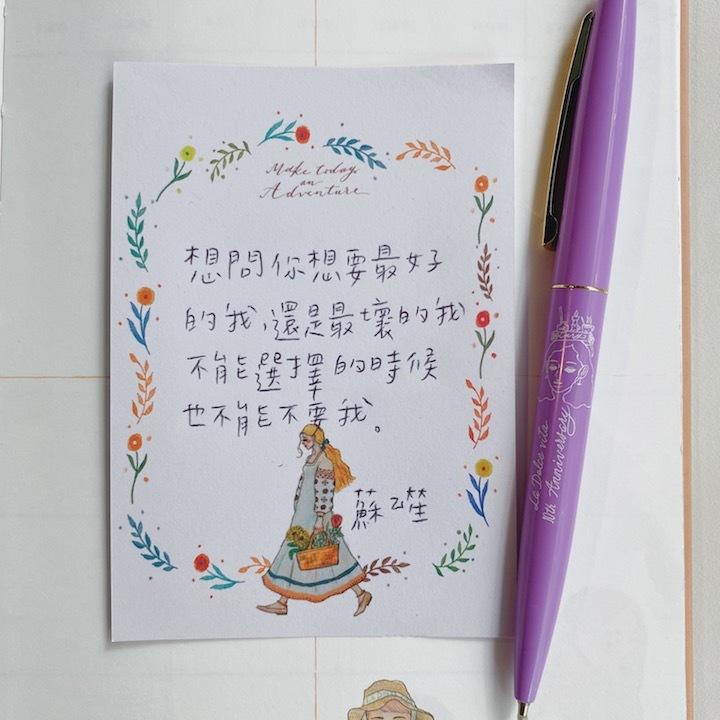 Make today
an
Adventure
想問你想要最好
的我,還是最壞的我
不能選擇的時候
也不能不要我。
蘇乙笙
La Dolce vita
10th Anniversary